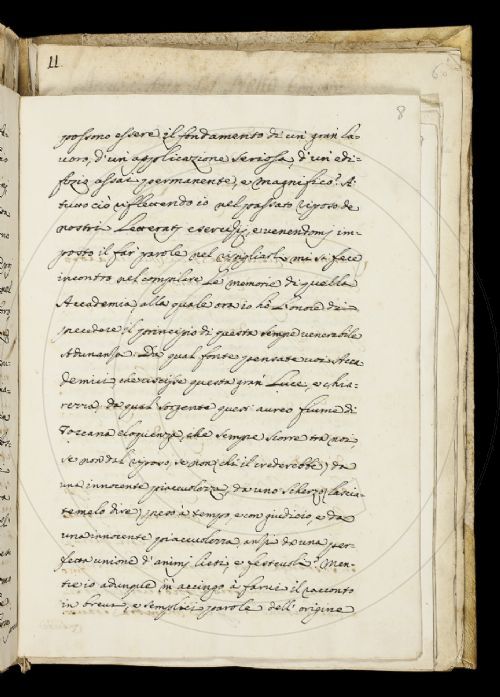 11
6
8
possono essere il fondamento di un' gran' la-
voro, d'un' applicazione seriosa, d'un' edi-
fizio assai permanente, e magnifico? A
tutto ciò riflettendo io nel passato riposo de
nostri Letterarj esercizj, e venendomi im-
posto il far parole nel ripigliarli mi si fece
incontro nel compilare le memorie di quella
Accademia, alla quale ora io hò l'onore di
presedere il principio di questa sempre venerabile
Adunanza. Da qual fonte pensate voi Acca-
demici, che uscisse questa gran' Luce, e chia-
rezza, da qual sorgente quest' aureo fiume di
Toscana eloquenza, che sempre scorre tra noi,
se non dal riposo, se non (chi il crederebbe) da
una innocente piacevolezza, da uno scherzo (lascia-
temelo dire) preso à tempo, e con giudicio, e da
una innocente piacevolezza, anzi da una per-
fetta unione d'animj lieti, e festevoli? Men-
tre io adunque m'accingo à farvi il racconto
in brevi, e semplici parole dell' origine